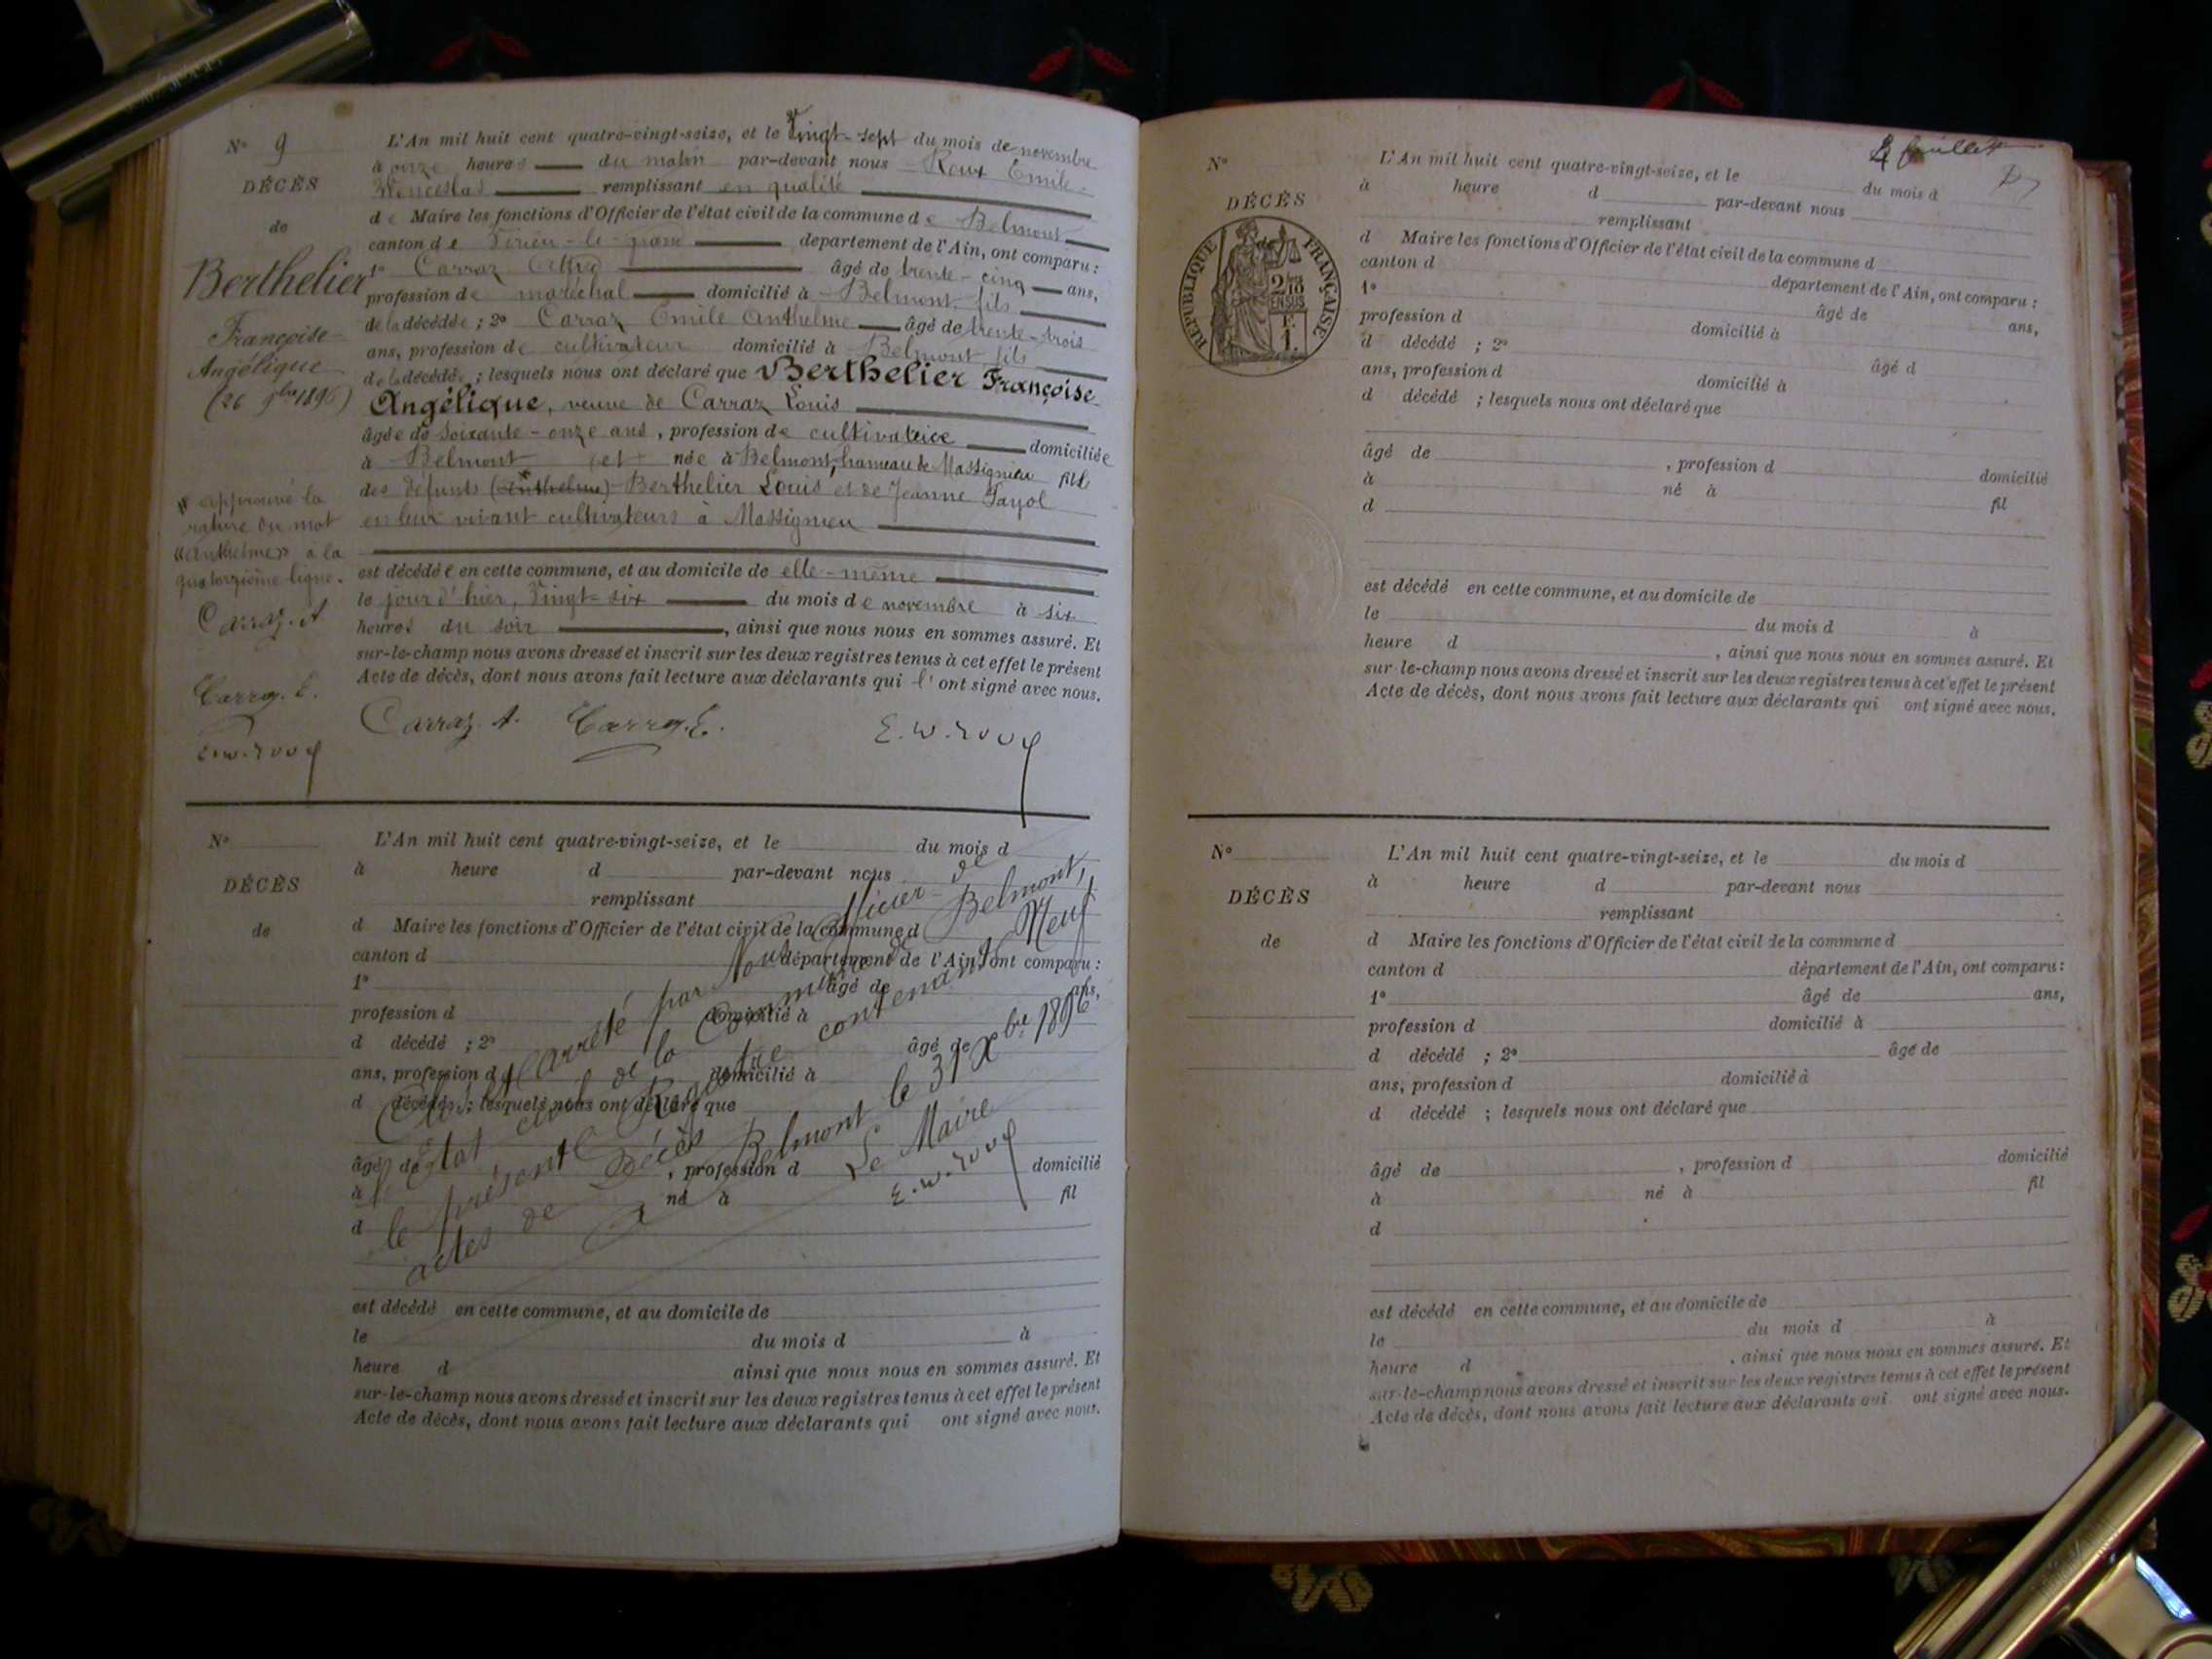 N° 9
DÉCÈS
de
Berthelier
Françoise
Angélique
(26 9bre 1896)
approuvé la
rature du mot
«anthelme» à la
quatorzième ligne.
Carraz. A
Carraz. E.
E. W. Roux
L'An mil huit cent quatre-vingt-seize, et le vingt-sept du mois de novembre
à onze heures du matin par-devant nous Roux Emile-
Wenceslas remplissant en qualité
de Maire les fonctions d'Officier de l'état civil de la commune de Belmont
canton de Virieu-le-grand département de l'Ain, ont comparu :
1° Carraz âgé de trente-cinq ans,
profession de maréchal domicilié à Belmont, fils
de la décédée ; 2° Carraz Emile Anthelme âgé de trente-trois
ans, profession de cultivateur domicilié à Belmont fils
de la décédée ; lesquels nous ont déclaré que Berthelier Françoise
Angélique, veuve de Carraz Louis
âgée de soixante-onze ans, profession de cultivatrice domiciliée
à Belmont et née à Belmont, hameau de Massignieu fille
des défunts (anthelme) Berthelier Louis et de Jeanne Payol
en leur vivant cultivateurs à Massignieu
est décédée en cette commune, et au domicile de elle-même
le jour d'hier, vingt-six du mois de novembre à six
heures du soir, ainsi que nous nous en sommes assuré. Et
sur-le-champ nous avons dressé et inscrit sur les deux registres tenus à cet effet le présent
Acte de décès, dont nous avons fait lecture aux déclarants qui l'ont signé avec nous.
Carraz. A. Carraz. E. E. W. Roux
N°
DÉCÈS
de
L'An mil huit cent quatre-vingt-seize, et le du mois d
à heure d par-devant nous
remplissant
d Maire les fonctions d'Officier de l'état civil de la commune d
canton d département de l'Ain, ont comparu :
1° âgé de ans,
profession d domicilié à
d décédé ; 2° âgé de
ans, profession d domicilié à
d décédé ; lesquels nous ont déclaré que
âgé de , profession d domicilié
à né à fil
d
est décédé en cette commune, et au domicile de
le du mois d à
heure d ainsi que nous nous en sommes assuré. Et
sur-le-champ nous avons dressé et inscrit sur les deux registres tenus à cet effet le présent
Acte de décès, dont nous avons fait lecture aux déclarants qui ont signé avec nous.
Clos et arrêté par Nous Officier de
l'Etat civil de la Commune de Belmont,
le présent Registre contenant Neuf
actes de Décès
Belmont le 31 Xbre 1896
Le Maire
E. W. Roux
4 feuillets
N°
DÉCÈS
RÉPUBLIQUE FRANÇAISE
2/10 EN SUS
F.
1.
L'An mil huit cent quatre-vingt-seize, et le du mois d
à heure d par-devant nous
remplissant
d Maire les fonctions d'Officier de l'état civil de la commune d
canton d département de l'Ain, ont comparu :
1° âgé de ans,
profession d domicilié à
d décédé ; 2° âgé d
ans, profession d domicilié à
d décédé ; lesquels nous ont déclaré que
âgé de , profession d domicilié
à né à fil
d
est décédé en cette commune, et au domicile de
le du mois d à
heure d , ainsi que nous nous en sommes assuré. Et
sur-le-champ nous avons dressé et inscrit sur les deux registres tenus à cet effet le présent
Acte de décès, dont nous avons fait lecture aux déclarants qui ont signé avec nous.
N°
DÉCÈS
de
L'An mil huit cent quatre-vingt-seize, et le du mois d
à heure d par-devant nous
remplissant
d Maire les fonctions d'Officier de l'état civil de la commune d
canton d département de l'Ain, ont comparu :
1° âgé de ans,
profession d domicilié à
d décédé ; 2° âgé de
ans, profession d domicilié à
d décédé ; lesquels nous ont déclaré que
âgé de , profession d domicilié
à né à fil
d
est décédé en cette commune, et au domicile de
le du mois d à
heure d , ainsi que nous nous en sommes assuré. Et
sur-le-champ nous avons dressé et inscrit sur les deux registres tenus à cet effet le présent
Acte de décès, dont nous avons fait lecture aux déclarants qui ont signé avec nous.